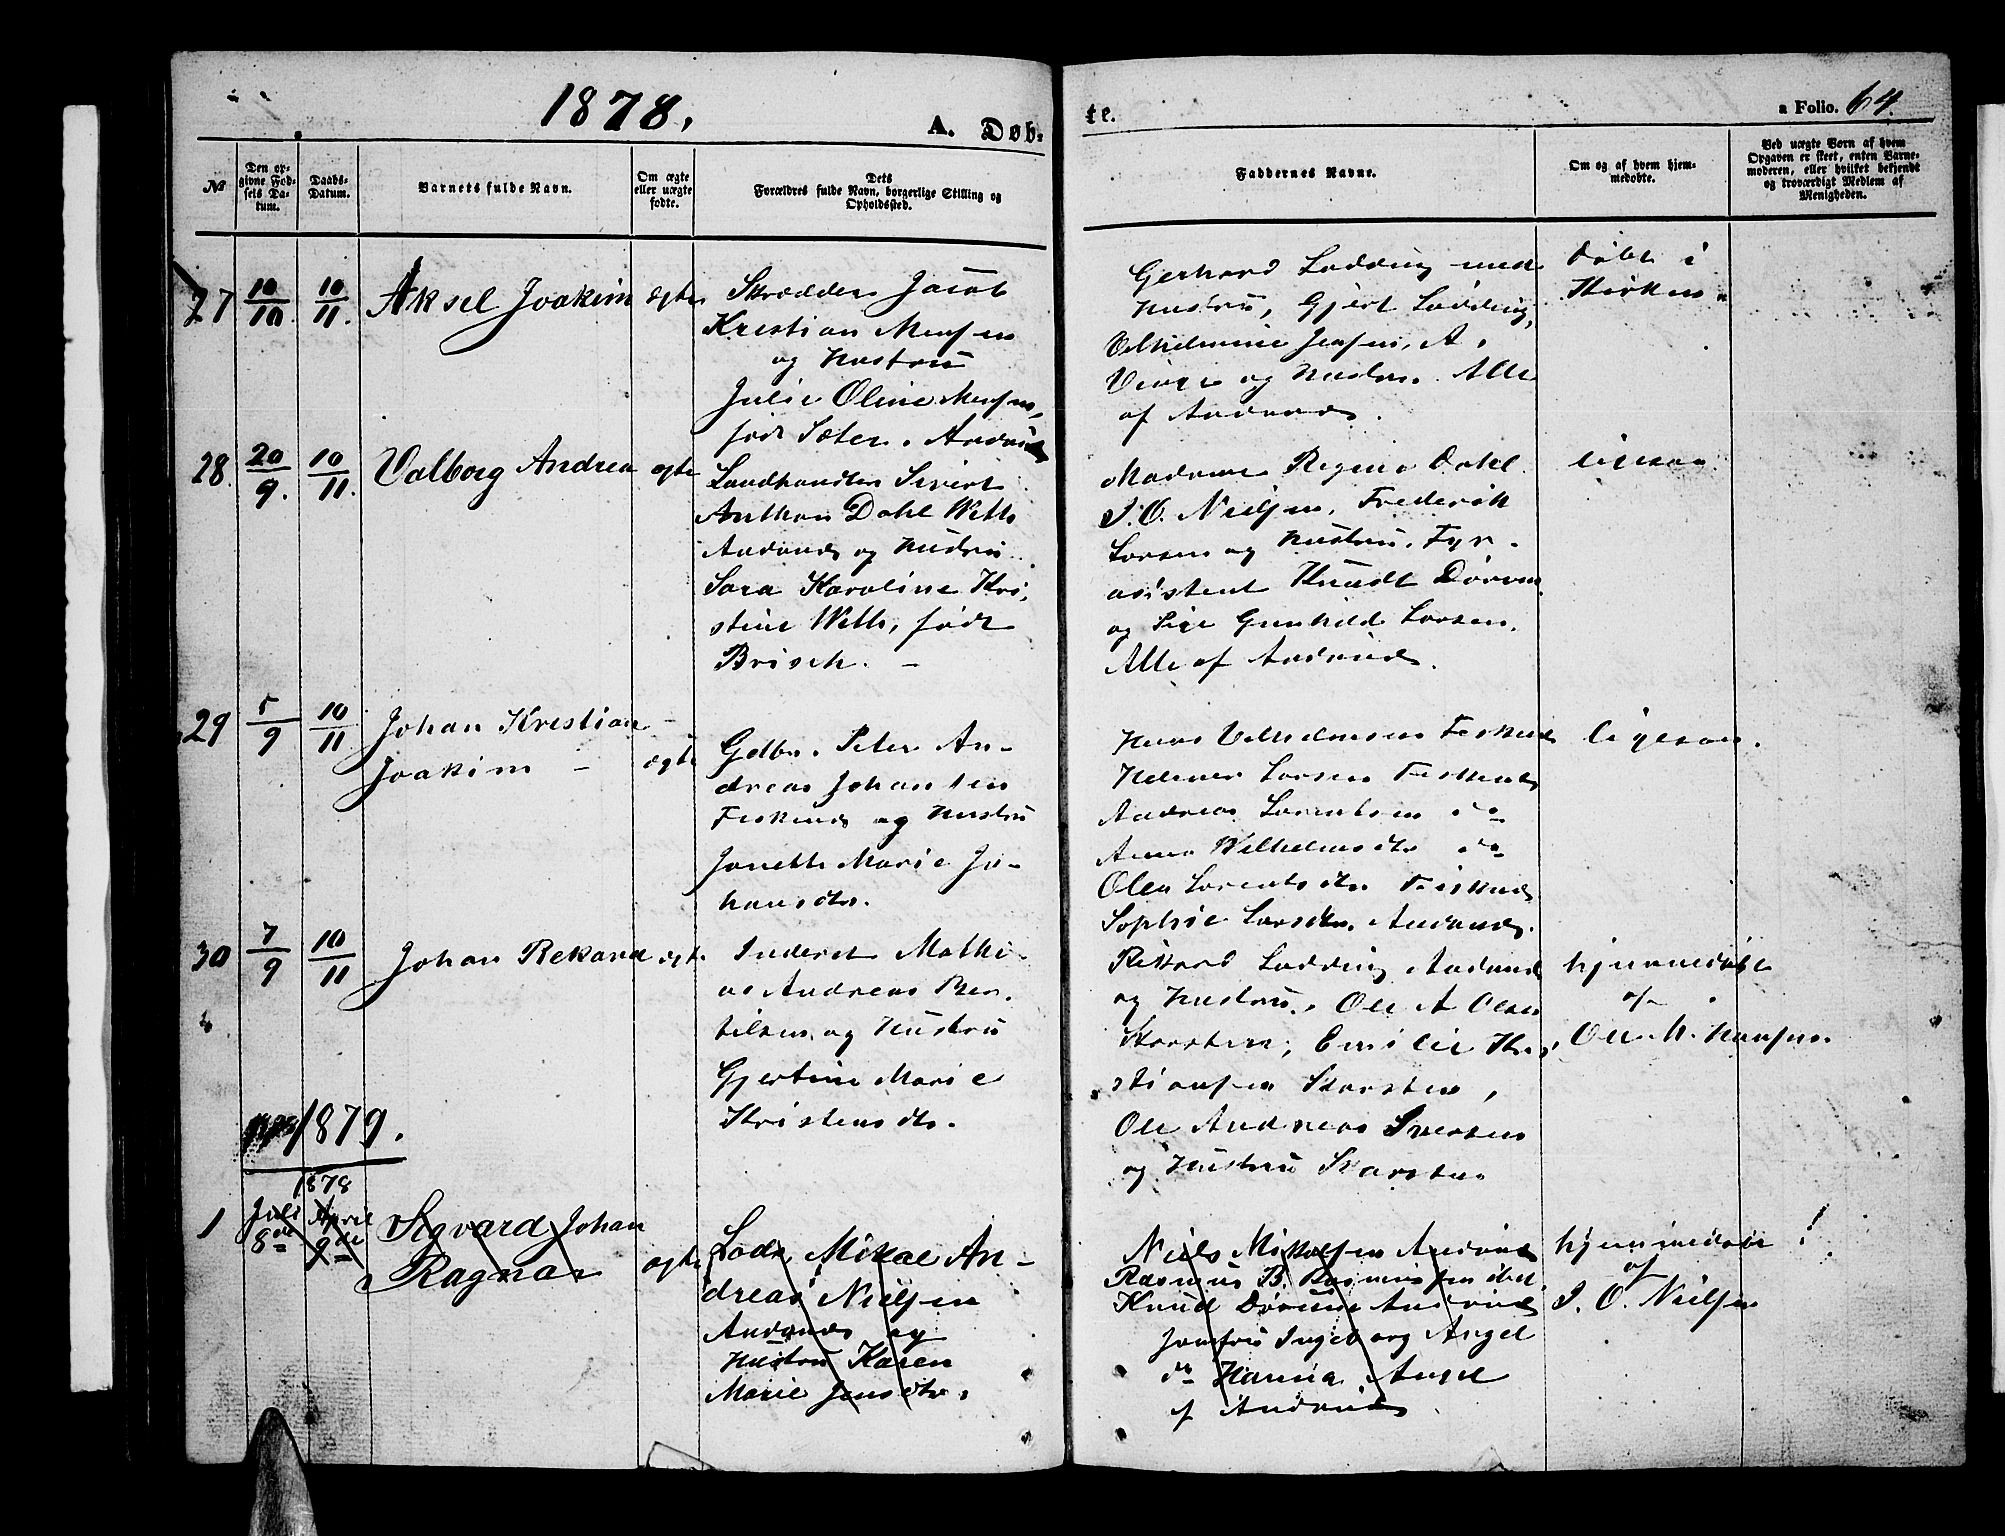 1878.
A. Døb-
te.
a Folio. 64.
№
Den op-
givne Fød-
sels Da-
tum.
Daabs-
Datum.
Barnets fulde Navn.
Om ægte
eller uægte
fødte.
Dets
Forældres fulde Navn, borgerlige Stilling og
Opholdssted.
Faddernes Navne.
Om og af hvem hjem-
medøbte.
Ved uægte Børn af hvem
Opgaven er skeet, enten Barne-
moderen, eller hvilket bekjendt
og troværdigt Medlem af
Menigheden.
27 10/10 10/11. Aksel Joakim ægte
Skrædder Jacob
Kristian
og Hustru
Julie Oline
født Sæter. Andenes
Gerhard Lodding med
Hustru, Gjert Lodding,
Vilhelmine Jensen, A.
og Hustru. Alle
af Andenes.
døbt i
Kirken
28. 20/9. 10/11. Valborg Andrea ægte
Landhandler Sivert
Anthon Dahl Weth
Andenes og Hustru
Sara Karoline Kri-
stine Weth, født
Brisch. -
Madame Regine Dahl
J. O. Nielsen, Frederik
Larsen og Hustru, Fyr-
assistent Knudt
og Gunhild Larsen.
Alle af Andenes.
ligesaa
29 5/9 10/11 Johan Kristian
Joakim - ægte
Gdbr. Peter An-
dreas Johansen
Fiskenes og Hustru
Jonette Marie Jo-
hansdtr.
Hans Vilhelmsen Fiskenes
Helmer Larsen Fiskenes
Andreas Lorentsen do
Anna Wilhelmsdtr do
Olea Lorentsdtr Fiskenes
Sophie Larsdtr. Andenes.
ligesaa.
30 7/9 10/11 Johan Rekard ægte
Inderst Mathi-
as Andreas Ber-
tilsen og Hustru
Gjertine Marie
Kristensdtr.
Rikard Lodding Andenes
og Hustru, Ole A Olsen
Skarsten, Emilie Kri-
stiansen Skarsten,
Ole Andreas Iversen
og Hustru Skarsten
hjemmedøbt
af
Ole M. Hansen.
1879.
1878
1 Juli 8de April 9de Sigvard Johan
Ragnar ægte
Lods Mikal An-
dreas Nielsen
Andenes og
Hustru Karen
Marie Jensdtr.
Niels Mikalsen Andenes
Rasmus B. Rasmussen ibd
Knud Andenes
Jomfru Ingeborg Angel
do Hanna Angel
af Andenes
hjemmedøbt !
af
J. O. Nielsen